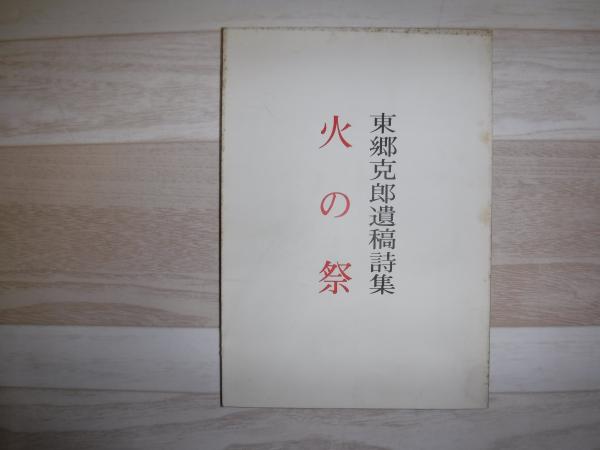 東郷克郎遺稿詩集
火の祭